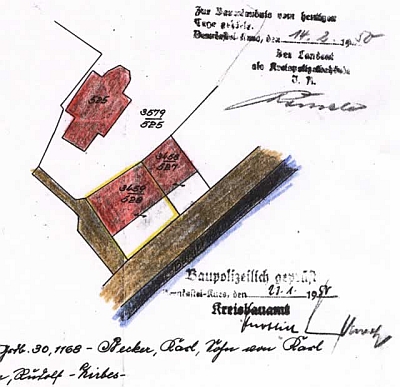 Zur Bauerlaubnis vom heutigen
Tage gehört.
Bernkastel-Kues, den 14. 2. 1950
Der Landrat
als Kreispolizeibehörde
I. A.
525
3579
525
3458
527
3459
528
Baupolizeilich geprüft
Bernkastel-Kues, den 21. 1. 1950
Kreisbauamt
30, 1168 - Becker, Karl, Sohn von Karl
Rudolf - Kirbes -